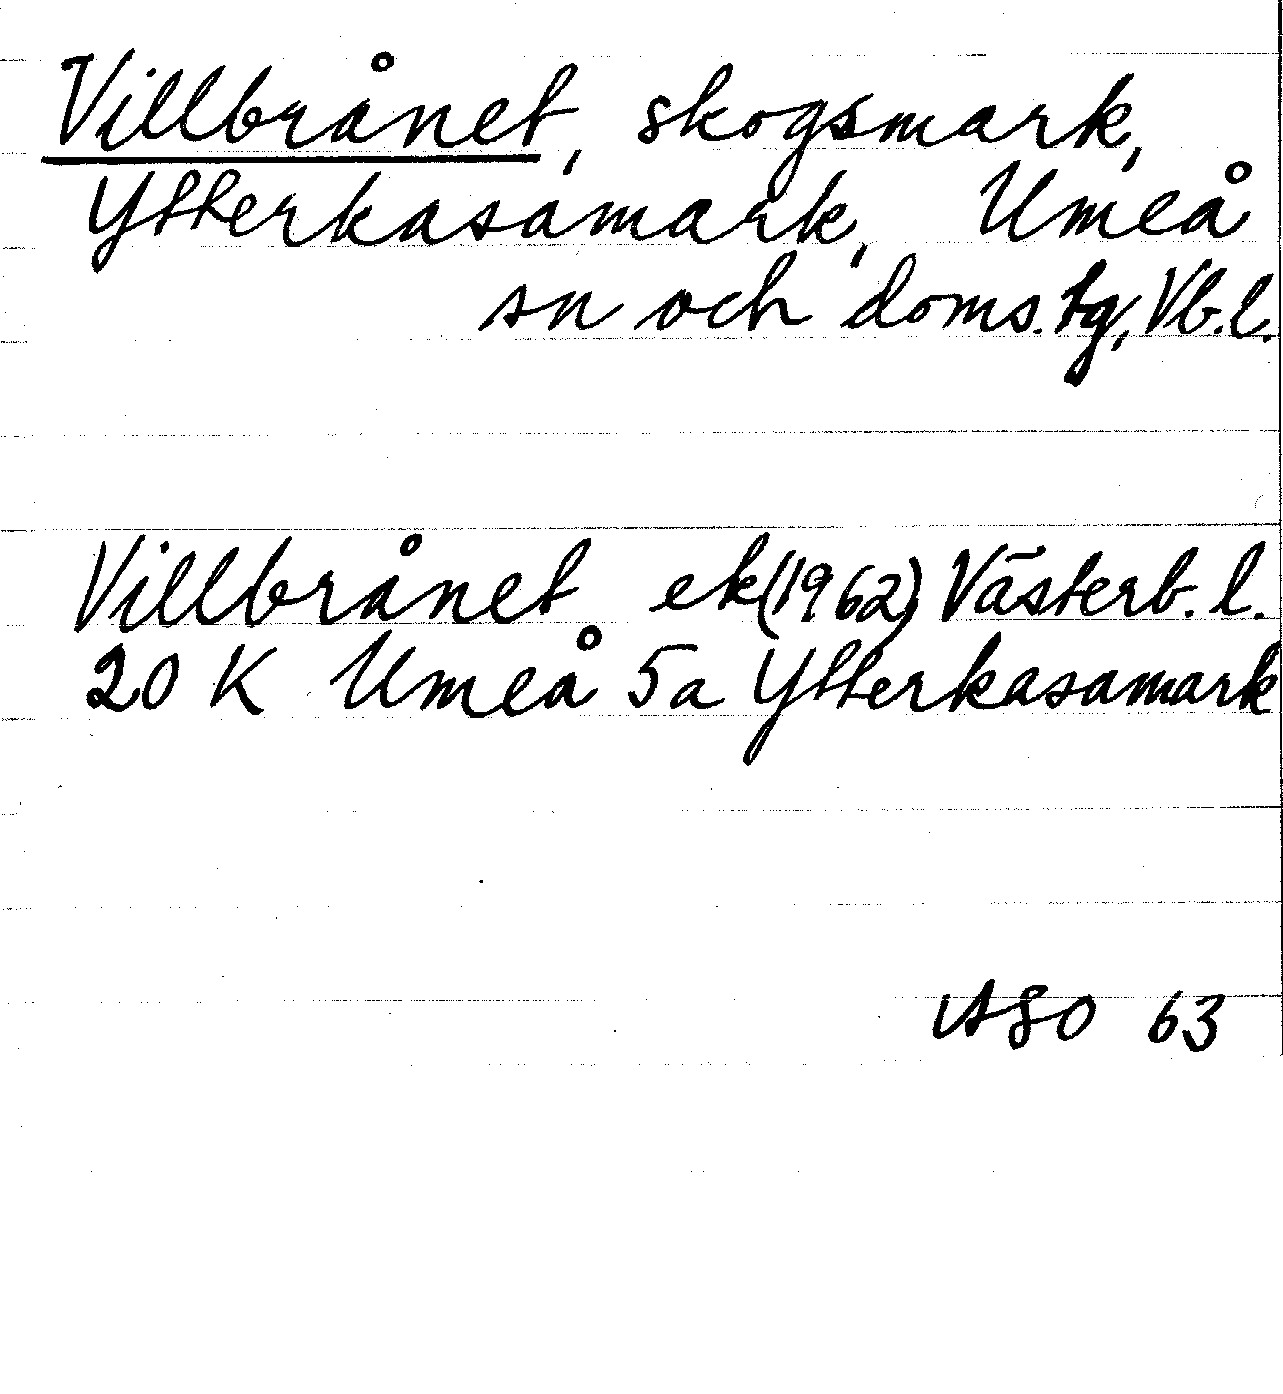 Villbrånet, skogsmark,
Ytterkasamark, Umeå
sn och doms. tg, Vb. l.
Villbrånet ek (1962) Västerb. l.
20 K Umeå 5a Ytterkasamark
ASO 63